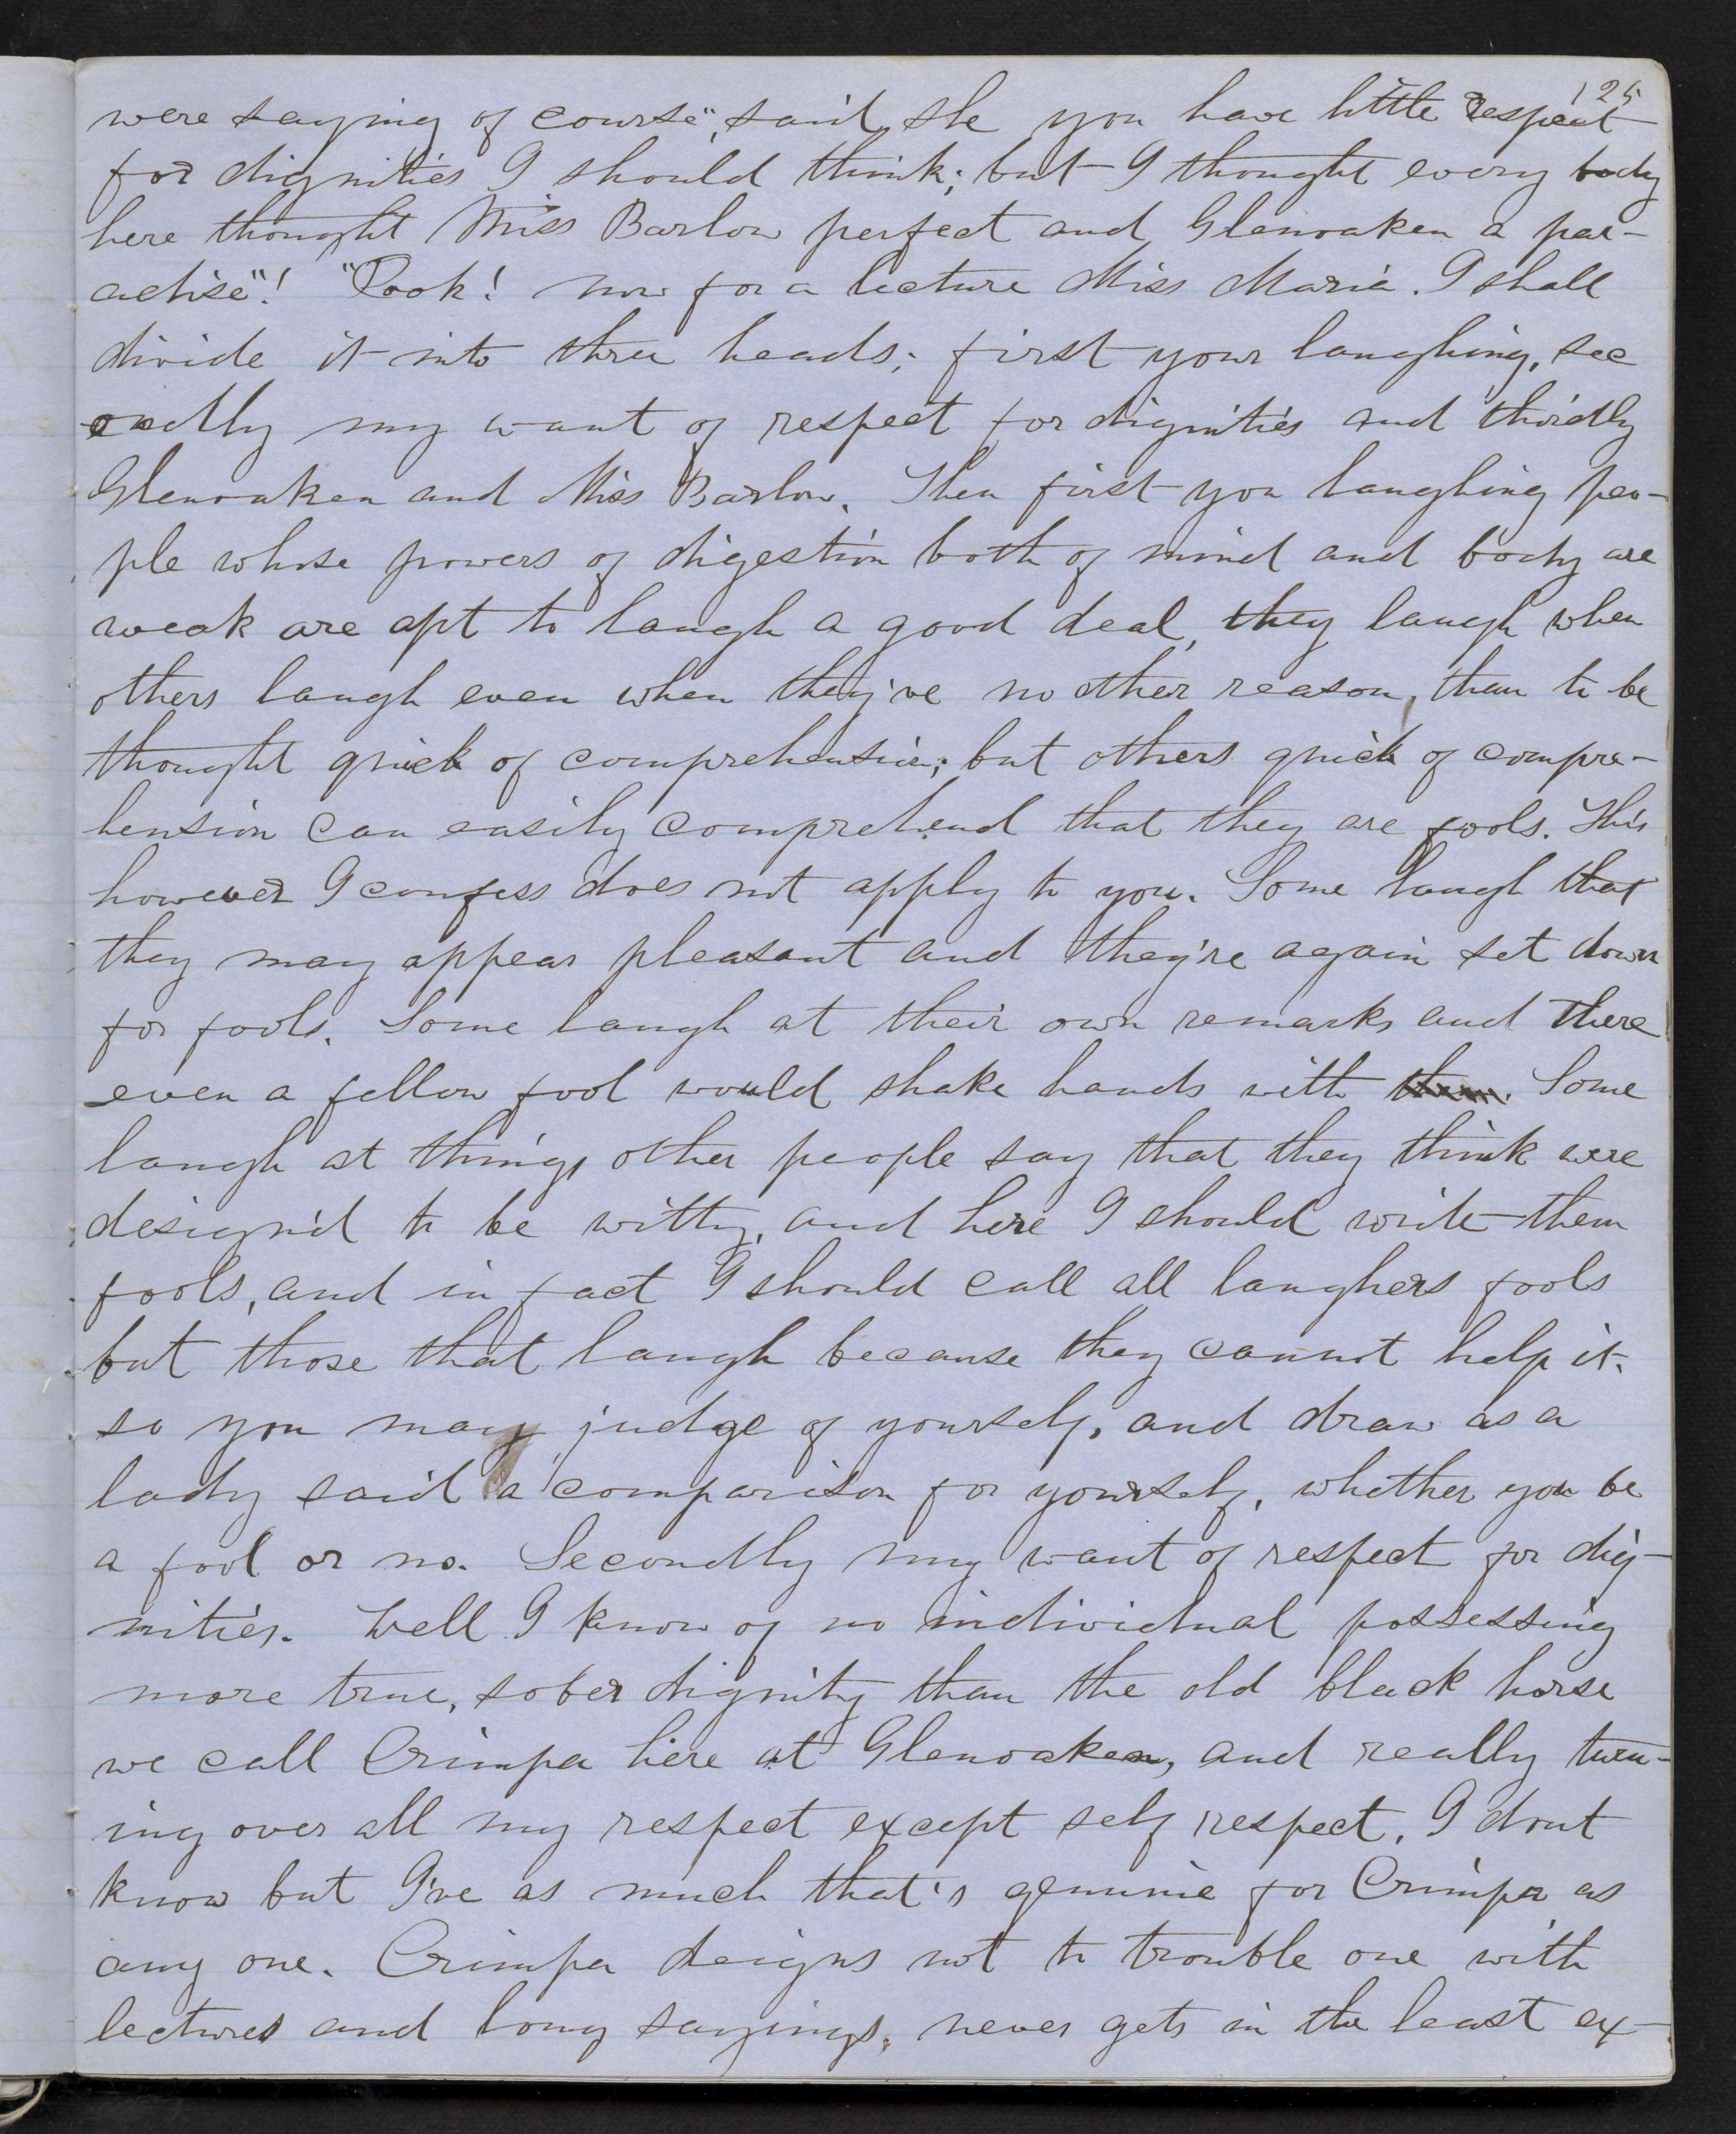 125
were saying of course", said she you have little respect
for dignities I should think; but I thought every body
here thought Miss Barlow perfect and Glenoaken a par-
adise"! "Pook! now for a lecture Miss Maria. I shall
divide it into three heads; first your laughing, sec
ondly my want of respect for dignities and thirdly
Glenoaken and Miss Barlow. Then first you laughing peo-
ple whose powers of digestion both of mind and body are
weak are apt to laugh a good deal, they laugh when
others laugh even when they've no other reason, than to be
thought quick of comprehension; but others quick of compre-
hension can easily comprehend that they are fools. This
however I confess does not apply to you. Some laugh that
they may appear pleasant and they're again set down
for fools. Some laugh at their own remarks and there
even a fellow fool would shake hands with them. Some
laugh at things other people say that they think were
design'd to be witty, and here I should write them
fools, and in fact I should call all laughers fools
but those that laugh because they cannot help it.
so you may judge of yourself, and draw as a
lady said a comparison for yourself, whether you be
a fool or no. Secondly my want of respect for dig-
nities. Well I know of no individual possessing
more true, sober dignity than the old black horse
we call Crimpa here at Glenoaken, and really turn-
ing over all my respect except self respect, I dont
know but I've as much that's genuine for Crimpa as
any one. Crimpa deigns not to trouble one with
lectures and long sayings, never gets in the least ex-